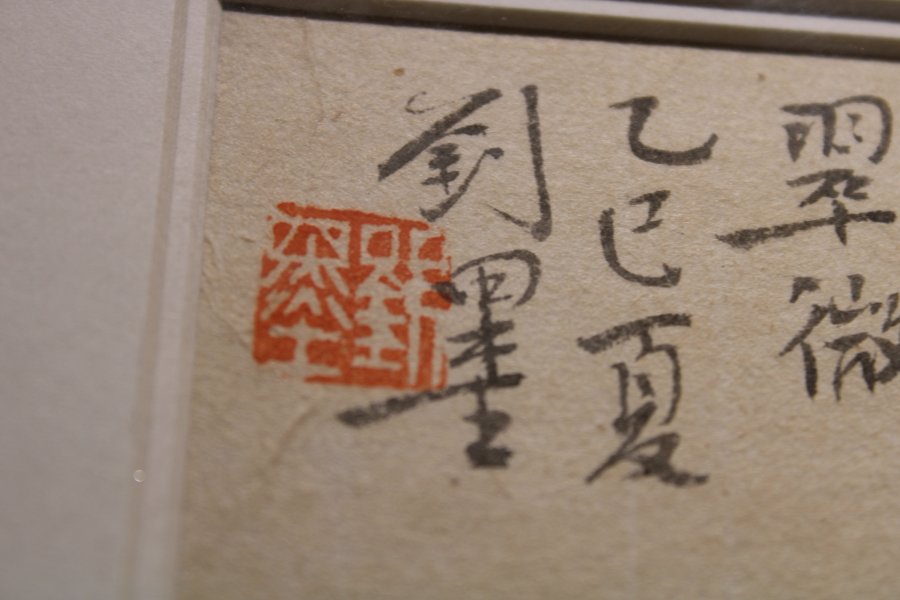 翠微
乙巳夏
劉墨